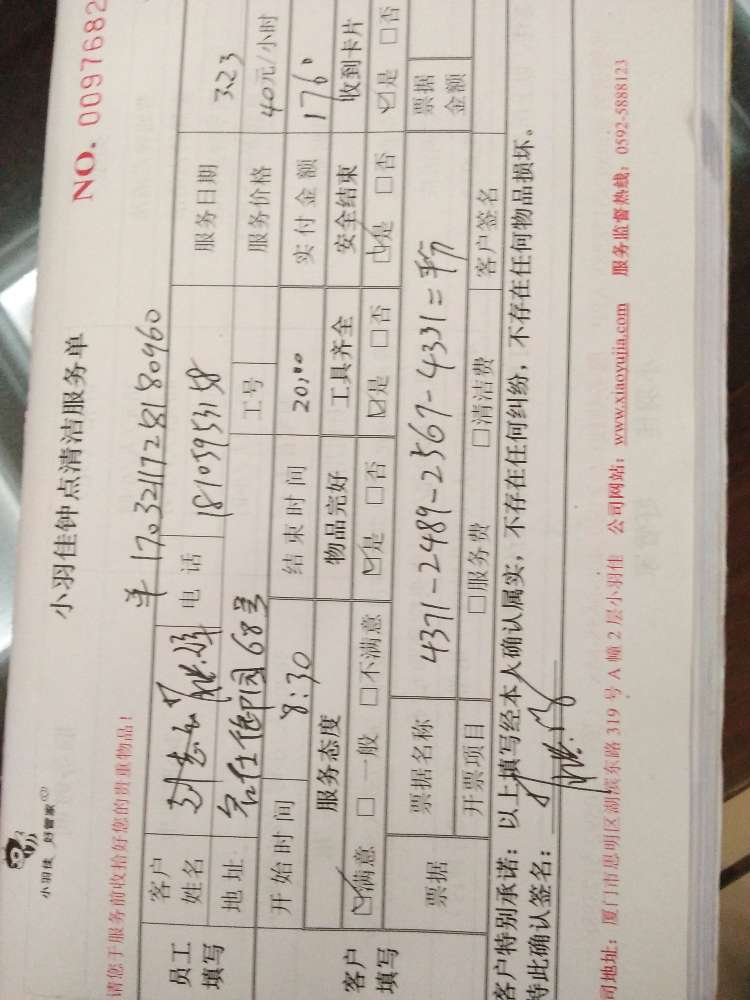 小羽佳 好管家
小羽佳钟点清洁服务单
NO. 0097682
请您于服务前收拾好您的贵重物品!
单 1703211728180960
员工填写
客户姓名
电话 18105953158
服务日期 3.23
地址 68号
工号
服务价格 40元/小时
开始时间 8:30
结束时间 20:00
实付金额 1760
客户填写
服务态度 物品完好 工具齐全 安全结束 收到卡片
☑满意 □一般 □不满意 ☑是 □否 ☑是 □否 ☑是 □否 ☑是 □否
票据
票据名称 4371-2489-2567-4331=
票据金额
开票项目 □服务费 □清洁费 客户签名
客户特别承诺:以上填写经本人确认属实,不存在任何纠纷,不存在任何物品损坏。
特此确认签名:
司地址:厦门市思明区湖滨东路 319 号 A 幢 2 层小羽佳 公司网站:www.xiaoyujia.com 服务监督热线:0592-5888123